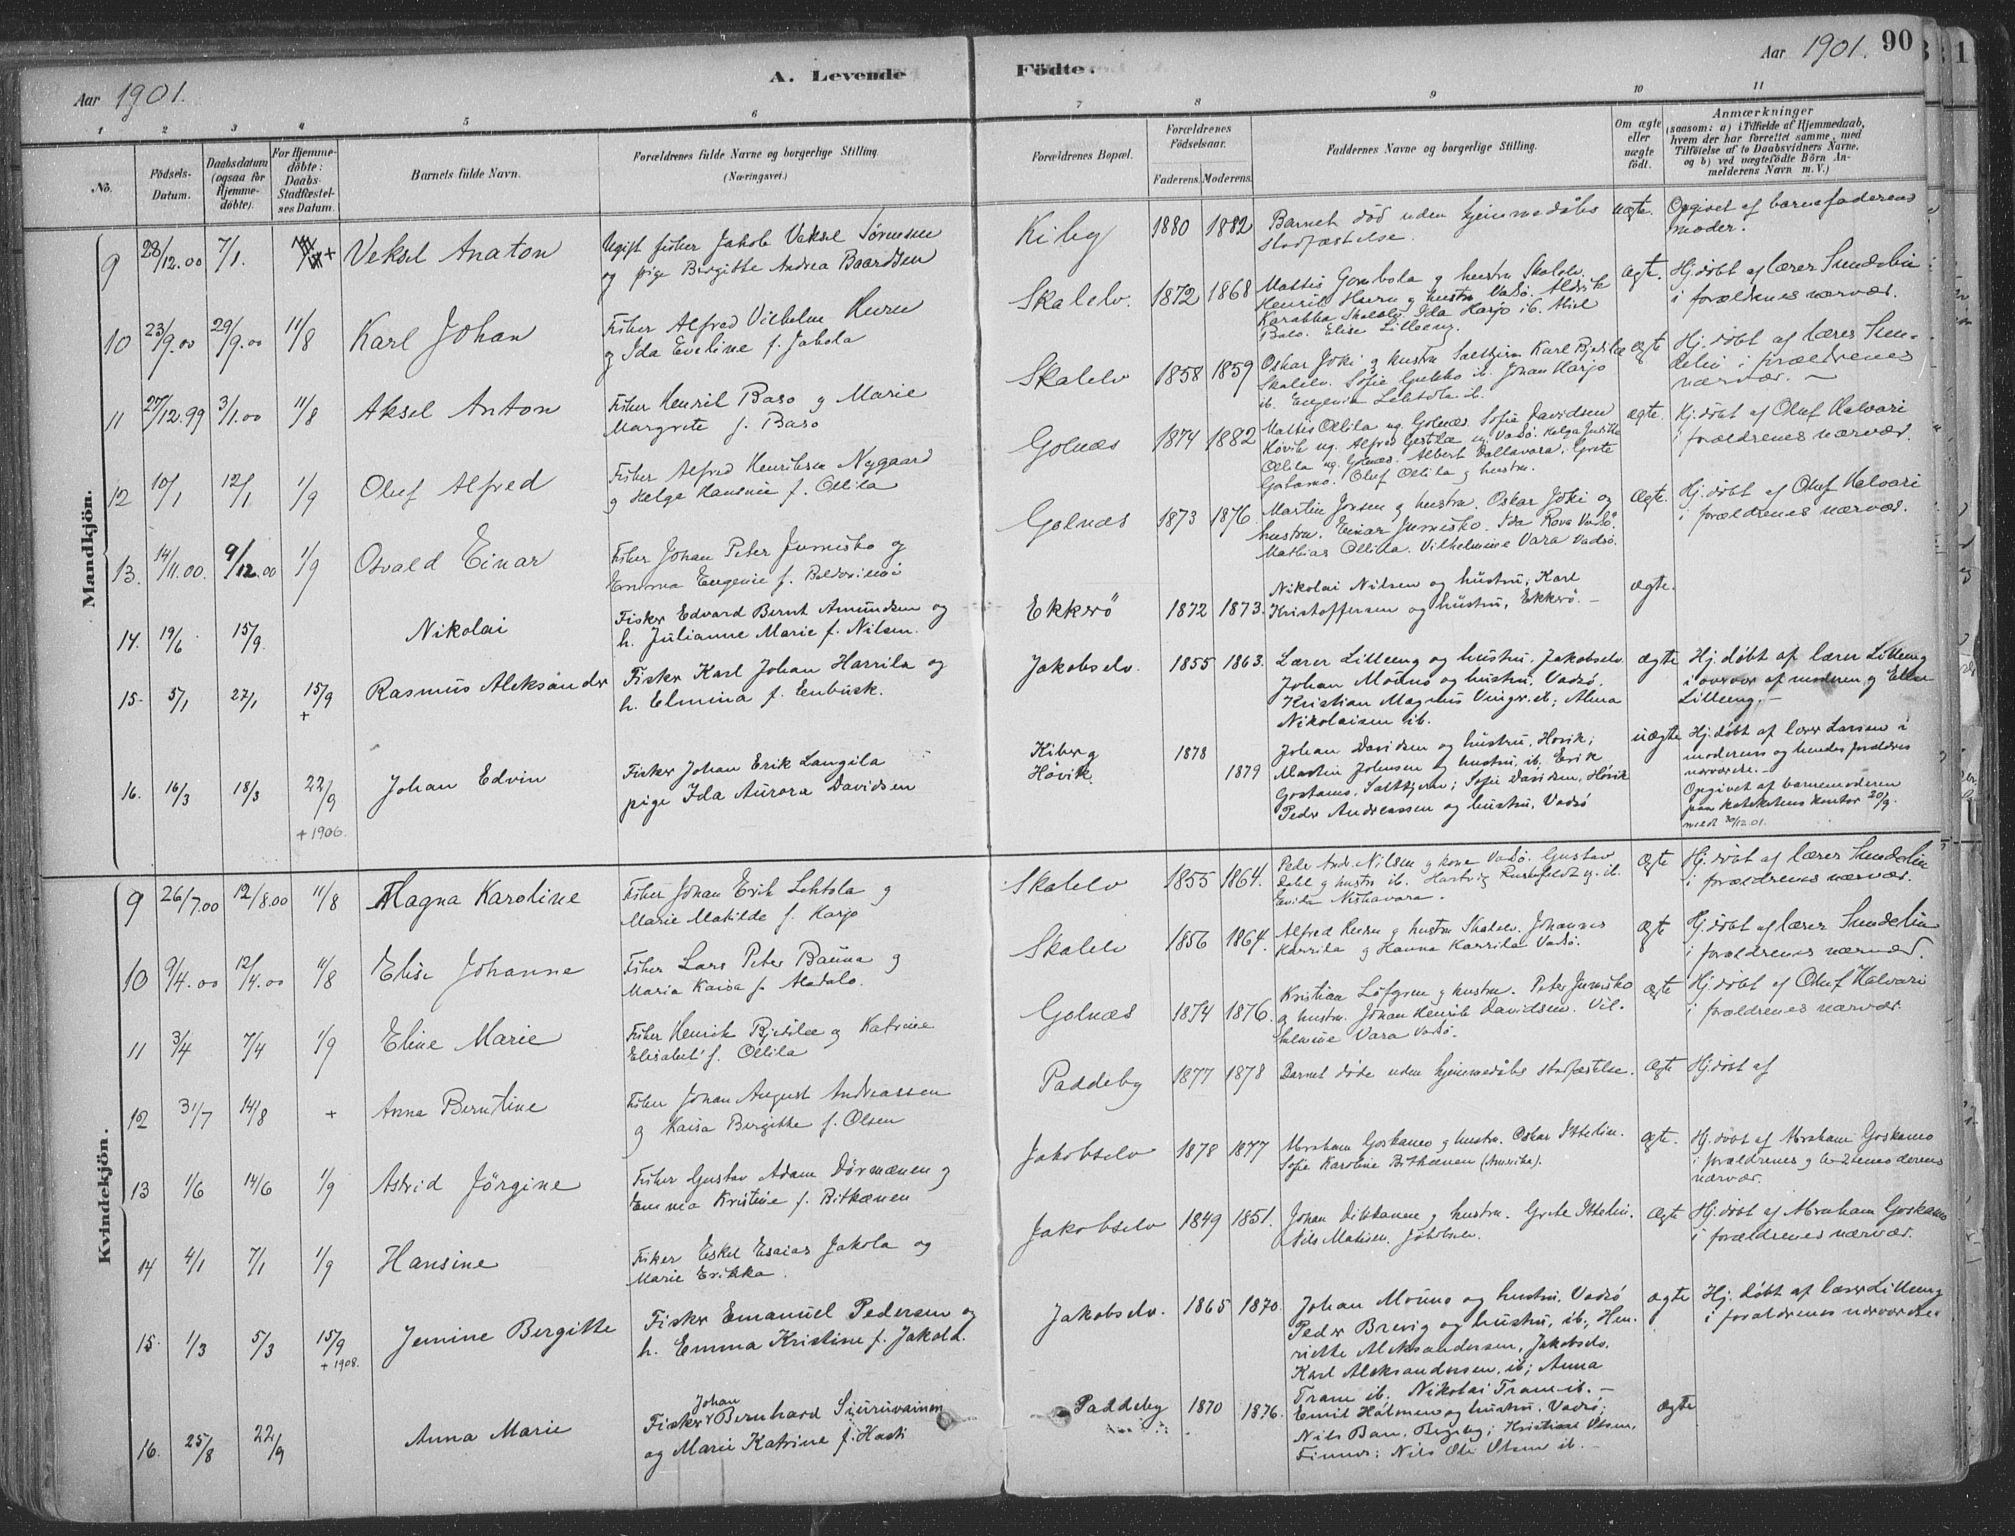 Aar 1901.
A. Levende
Födte.
Aar 1901.
90
1 2 3 4 5 6 7 8 9 10 11
No.
Födsels-
Datum.
Daabsdatum
(ogsaa for
Hjemme-
döbte).
For Hjemme-
döbte:
Daabs-
Stadfæstel-
ses Datum.
Barnets fulde Navn.
Forældrenes fulde Navne og borgerlige Stilling
(Næringsvei.)
Forældrenes Bopæl.
Forældrenes
Födselsaar.
Faderens. Moderens.
Faddernes Navne og borgerlige Stilling.
Om ægte
eller
uægte
födt.
Anmærkninger
(saasom: a) i Tilfælde af Hjemmedaab,
hvem der har forrettet samme, med
Tilföielse af to Daabsvidners Navne,
og b) ved uægtefödte Börn An-
melderens Navn m. V.)
Mandkjön.
9 28/12.00 7/1. + Veksel Anaton
Ugift fisker Jakob Veksel Sörensen
og pige Birgitte Andrea Baardsen
Kiby 1880 1882
Barnet död uden hjemmedåbs
stadfæstelse.
uægte.
Opgivet af barnefaderens
moder.
10 23/9.00 29/9.00 11/8 Karl Johan
Fisker Alfred Vilhelm Huru
og Ida Eveline f. Jakola
Skalelv. 1872 1868
Mattis Gombola og hustru Skalelv.
Henrik Huru og hustru Vadsö.
Ida Harjo ib.
Baso. Elise Lilleeng.
Ægte.
Hj. döbt af lærer Sundelin
i forældrenes nærvær.
11 27/12.99 3/1.00 11/8 Aksel Anton
Fisker Henrik Baso og Marie
Margrete f. Baso
Skalelv 1858 1859
Oskar Joki og hustru Saltkjern Karl
Skalelv. Sofie ib. Johan Harjo
ib. Eugenia Lehtola ib.
ægte
Hj. döbt af lærer Sun-
delin i forældrenes
nærvær. —
12 10/1 12/1 1/9 Oluf Alfred
Fisker Alfred Henriksen Nygaard
og Helga Hansine f. Ollila
Golnæs 1874 1882
Mattis Ollila ug. Golnæs. Sofie Davidsen
Hövik ug. Alfred ug. Vadsö. Helga
Ollila ug. Golnæs. Albert Vallavara. Grete
Oluf Ollila og hustru.
ægte.
Hj. döbt af Oluf Halvari
i forældrenes nærvær.
13. 14/11.00. 9/12.00 1/9 Osvald Einar
Fisker Johan Peter Jumisko og
Emma Eugenie f.
Golnæs 1873 1876.
Martin Jensen og hustru. Oskar Joki og
hustru. Einar Jumisko. Ida Rova Vadsö.
Mathias Ollila. Vilhelmine Vara Vadsö.
Ægte.
Hj. döbt af Oluf Halvari
i forældrenes nærvær.
14. 19/6 15/9. Nikolai
Fisker Edvard Bernt Amundsen og
h. Julianne Marie f. Nilsen.
Ekkerö 1872 1873.
Nikolai Nilsen og hustru, Karl
Kristoffersen og hustru, Ekkerö. —
ægte.
15. 5/1 27/1 15/9 + Rasmus Aleksander
Fisker Karl Johan Harrila og
h. Elmina f. Enbusk.
Jakobselv. 1855 1863.
Lærer Lilleeng og hustru. Jakobselv
Johan Mouno og hustru, Vadsö.
Kristian Magnus ib; Alma
Nikolaisen ib.
ægte
Hj. döbt af lærer Lilleeng
i overvær af moderen og Ellen
Lilleeng. —
16. 16/3 18/3 22/9 + 1906. Johan Edvin
Fisker Johan Erik Langila
pige Ida Aurora Davidsen
Kiberg 1878
Hövik 1879
Johan Davidsen og hustru, Hovik;
Martin Johnsen og hustru, ib, Erik
Goskamo, Saltkjern; Sofie Davidsen, Hövik
Peder Andreassen og hustru, Vadsö
uægte
Hj. döbt af lærer Larsen i
moderens og hendes forældres
nærværelse. —
Opgivet af barnemoderen
paa katekatens kontor 20/9.
medt 30/12 01.
Kvindekjön.
9 26/7.00 12/8.00 11/8 Magna Karoline
Fisker Johan Erik Lehtola og
Marie Matilde f. Harjo
Skalelv 1855 1864.
Peder Andr. Nilsen og kone Vadsö. Gustav
Dahl og hustru ib. Hartvig ib.
Niskavara.
Ægte
Hj. döbt af lærer Sundelin
i forældrenes nærvær.
10 9/4.00 12/4.00 11/8 Elise Johanne
Fisker Lars Peter Bauna og
Maria Kaisa f. Alatalo.
Skalelv 1856 1864.
Alfred Huru og hustru Skalelv. Johannes
Karrila og Hanna Karrila Vadsö.
Ægte
Hj. döbt af lærer Sundelin
i forældrenes nærvær.
11 3/4 7/4 1/9 Eline Marie
Fisker Henrik og Katrine
Elisabet f. Ollila
Golnæs 1874 1876.
Kristian Löfgren og hustru. Peter Jumisko
og hustru. Johan Henrik Davidsen. Vil-
helmine Vara Vadsö.
ægte
Hj. döbt af Oluf Halvari
i forældrenes nærvær.
12 31/7 14/8 + Anna Berntine
Fisker Johan August Andreassen
og Kaisa Birgitte f. Olsen
Paddeby 1877 1878
Barnet döde uden hjemmedåbs stadfæstelse.
Ægte
Hj. döbt af
13 1/6 14/6 1/9 Astrid Jörgine
Fisker Gustav Adam Dörmænen og
Emma Kristine f. Pitkænen
Jakobselv 1878 1877
Abraham Goskamo og hustru. Oskar Ittelin.
Sofie Karoline Pitkænen (Amerika).
ægte.
Hj. döbt af Abraham Goskamo
i forældrenes og
nærvær.
14 4/1 7/1 1/9 Hansine
Fisker Eskel Esaias Jakola og
Marie Erikka.
Jakobselv 1849 1851.
Johan og hustru. Grete Ittelin.
Nils Matisen. Jakobselv.
Ægte
Hj. döbt af Abraham Goskamo
i forældrenes nærvær.
15. 1/3 5/3 15/9 + 1908. Jemine Bergitte
Fisker Emanuel Pedersen og
h. Emma Kristine f. Jakola.
Jakobselv. 1865 1870.
Johan Mouno og hustru, Vadsö
Peder Brevig og hustru, ib, Hen-
riette Aleksandersen, Jakobselv.
Karl Aleksandersen, ib; Anna
Tram ib. Nikolai Tram ib. —
ægte
Hj. döbt af lærer Lilleeng
i forældrenes nærværelse.
16. 25/8 22/9 Anna Marie
Johan
Fisker Bernhard Siuruvainen
og Marie Katrine f. Hasti
Paddeby 1870 1876.
Emil Holmen og hustru, Vadsö;
Nils Ban, Kristian Olsen,
Finnes; Nils Ole Olsen ib. —
ægte